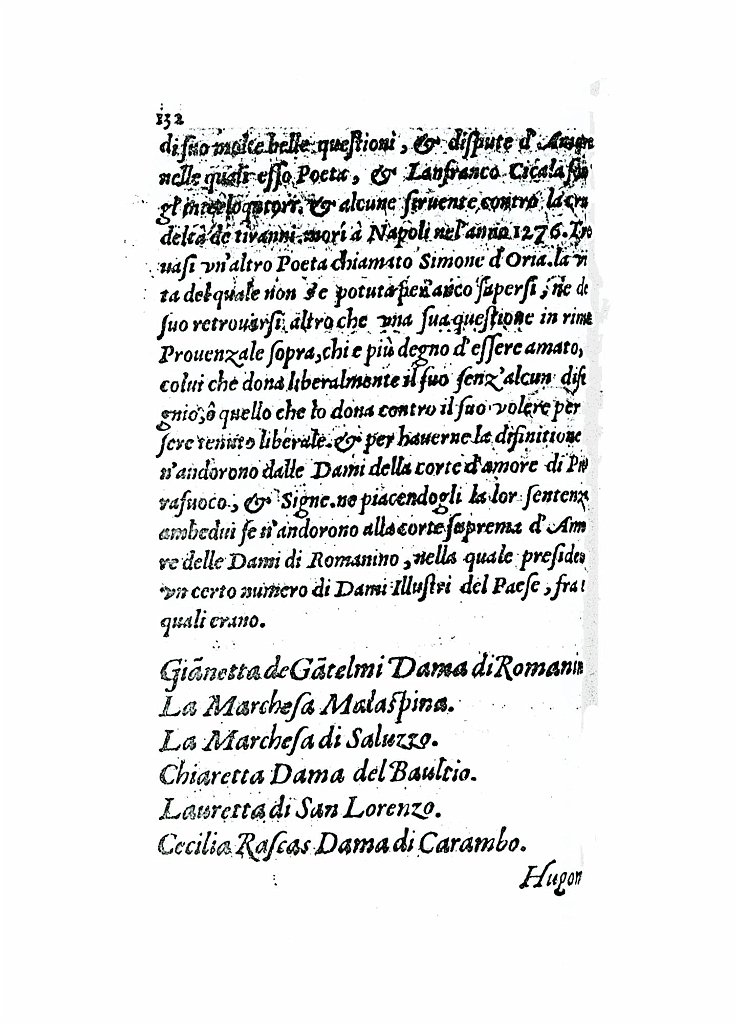 132
di suo molte belle questioni, & dispute d'Amor
nelle quali esso Poeta, & Lanfranco Cicala son
gl'interloqutori. & alcune seruente contro la cru
deltà de tiranni. morì à Napoli nel'anno 1276. Tro
uasi vn'altro Poeta chiamato Simone d'Oria. la vi
ta del quale non s'e potuta per anco sapersi, ne de
suo retrouarsi altro che vna sua questione in rime
Prouenzale sopra, chi e più degno d'essere amato,
colui che dona liberalmente il suo senz'alcun dise
gnio, ô quello che lo dona contro il suo volere per
sere tenuto liberale. & per hauerne la difinitione
n'andorono dalle Dami della corte d'amore di Pie
rafuoco, & Signe. ne piacendogli la lor sentenz
ambedui se n'andorono alla corte suprema d'Amo
re delle Dami di Romanino, nella quale presideu
vn certo numero di Dami Illustri del Paese, fra l
quali erano.
Giānetta de Gātelmi Dama di Romanin
La Marchesa Malaspina.
La Marchesa di Saluzzo.
Chiaretta Dama del Baultio.
Lauretta di San Lorenzo.
Cecilia Rascas Dama di Carambo.
Hugon